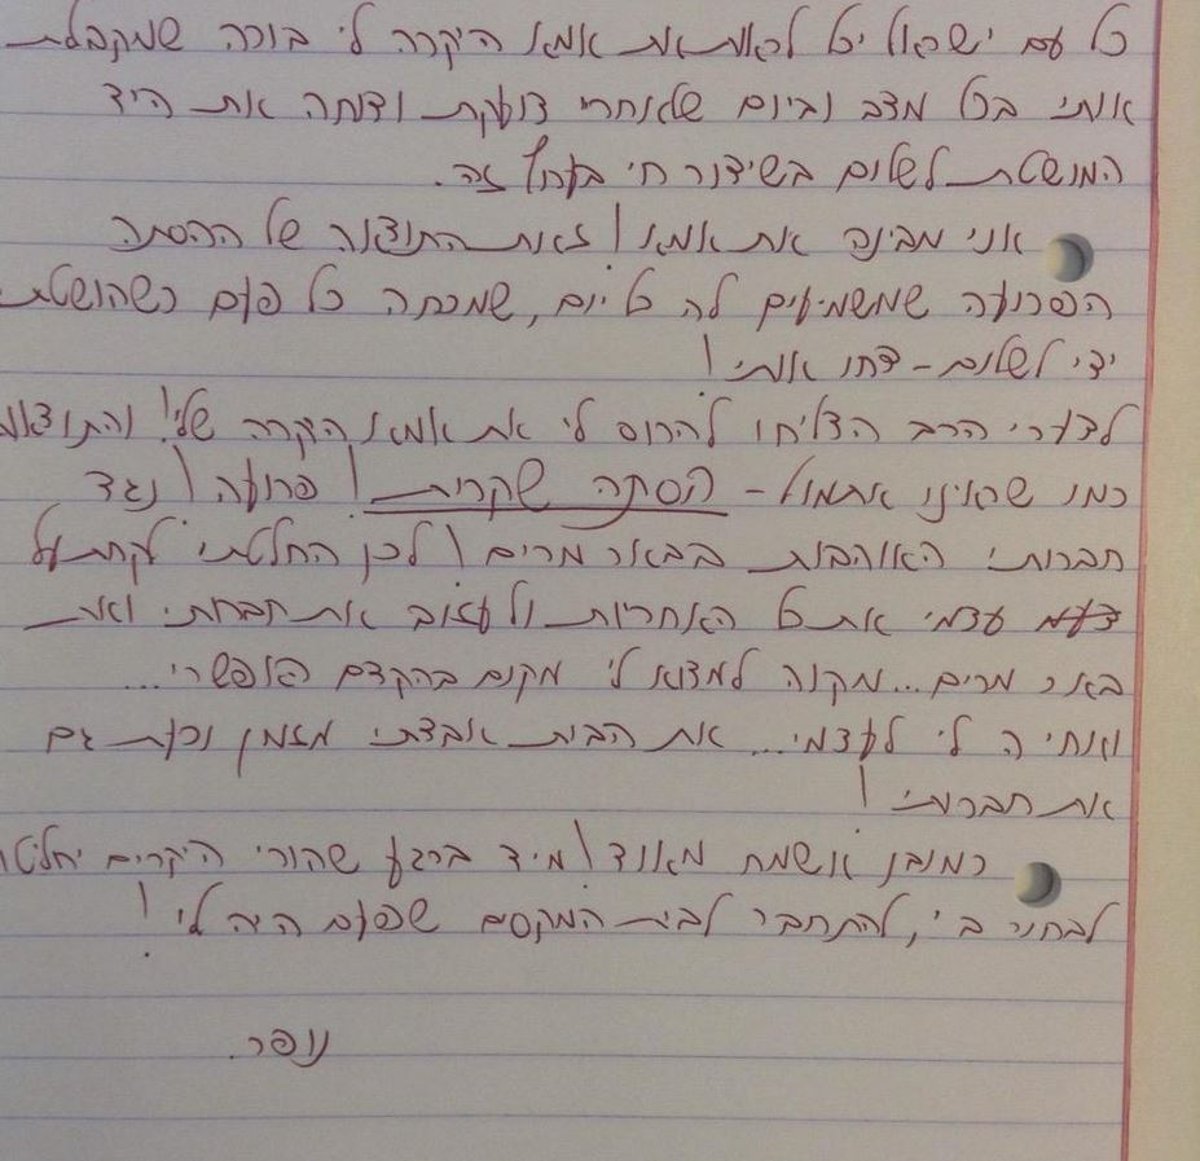 כל עם ישראל יכל לראות את אמא היקרה לי בוכה שמקבלת
אותי בכל מצב וביום שלאחרי צועקת ודוחה את היד
המושטת לשלום בשידור חי בערוץ זה.
אני מבינה את אמא! זאת התוצאה של ההסתה
הפרועה שמשמיעים לה כל יום, שמכתה כל פעם כשהושטת
ידי לשלום - דחו אותי!
לצערי הרב הצליחו להרוס לי את אמא היקרה שלי! והתוצאות
כמו שראינו אתמול - הסתה שקרית! פרועה! נגד
חברותי האוהבות בבאר מרים! לכן החלטתי לקחת על
עצמי את כל האחריות ולעזוב את חברותי ואת
באר מרים... מקווה למצוא לי מקום בהקדם האפשרי...
ואחיה לי לעצמי... את הבית אבדתי מזמן וכעת גם
את חברותי!
כמובן אשמח מאוד! מיד ברגע שהורי היקרים יחליטו
לבחור בי, להתחבר לבית המקסים שפעם היה לי!
נופר.